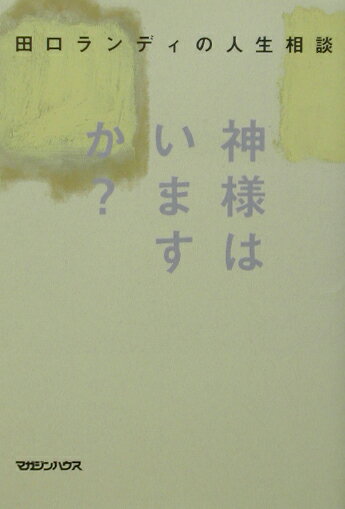 田口ランディの人生相談
神様は
います
か？
マガジンハウス